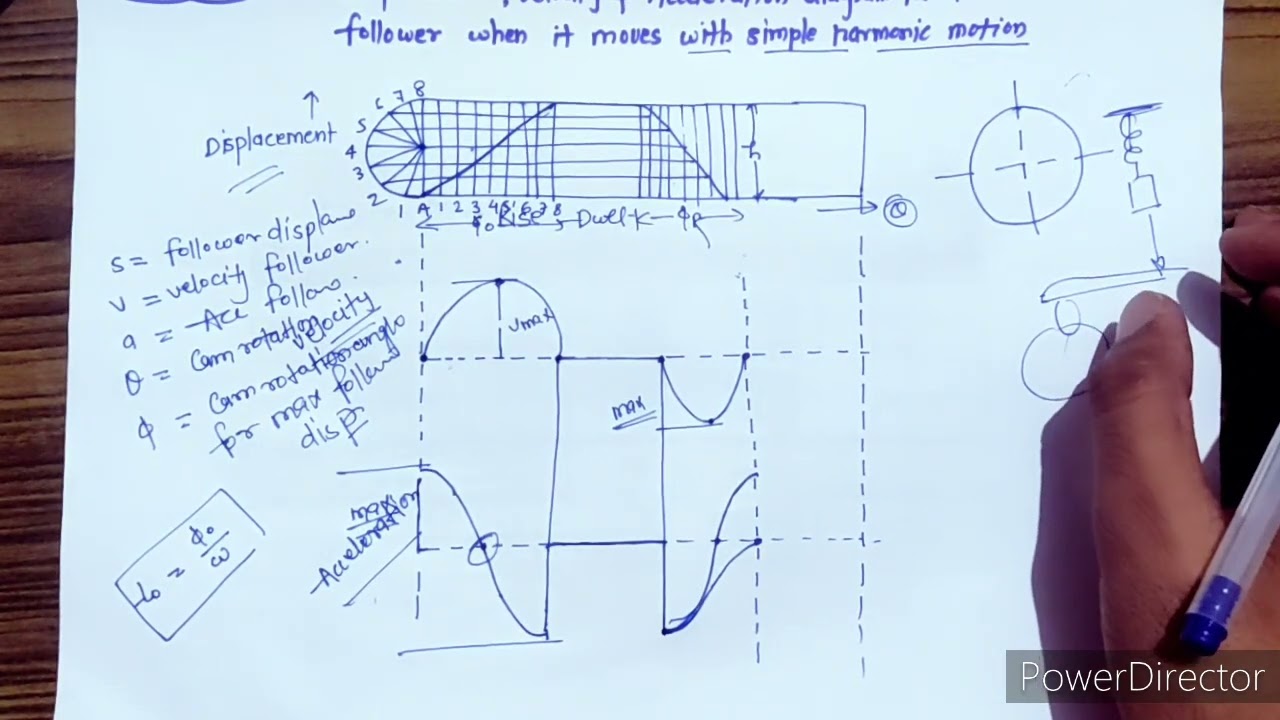 follower when it moves with simple harmonic motion
Displacement
1 2 3 4 5 6 7 8
A 1 2 3 4 5 6 7 8
Rise Dwell
h
θ
s = follower displane
v = velocity follower.
a = Acc follow.
θ = Cam rotation velocity
ϕ = Cam rotation anglo
for max follow
disp
Vmax
max
maxion
Acceleration
to = ϕo/ω
PowerDirector